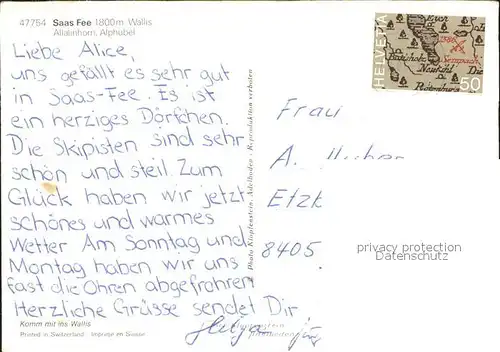 47754 Saas Fee 1800m Wallis
Allalinhorn, Alphubel
Liebe Alice,
uns gefällt es sehr gut
in Saas-Fee. Es ist
ein herziges Dörfchen.
Die Skipisten sind sehr
schön und steil. Zum
Glück haben wir jetzt
schönes und warmes
Wetter Am Sonntag und
Montag haben wir uns
fast die Ohren abgefroren
Herzliche Grüsse sendet Dir
Helga
Komm mit ins Wallis
Printed in Switzerland Imprimé en Suisse
Photo Klopfenstein, Adelboden - Reproduktion verboten
HELVETIA
1386
Sempach
50
Frau
A.
Etzk
8405
privacy protection
Datenschutz